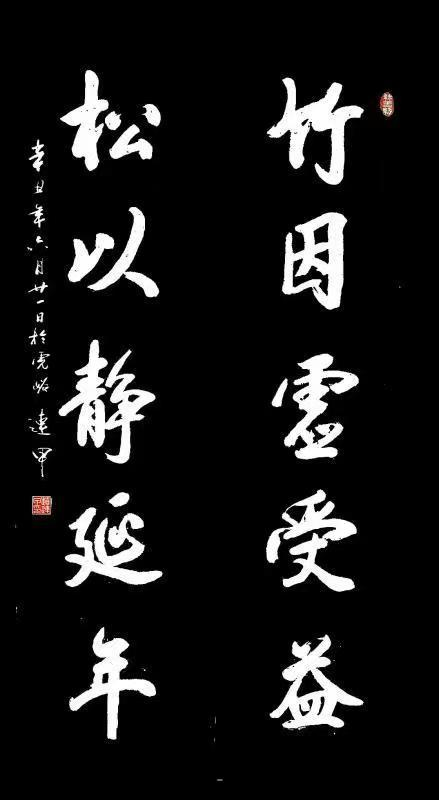 竹因虚受益
松以静延年
辛丑年六月廿一日於虎峪 建甲